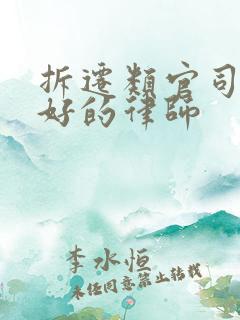 拆遷類官司
好的律師
李水恒
未经同意禁止转载